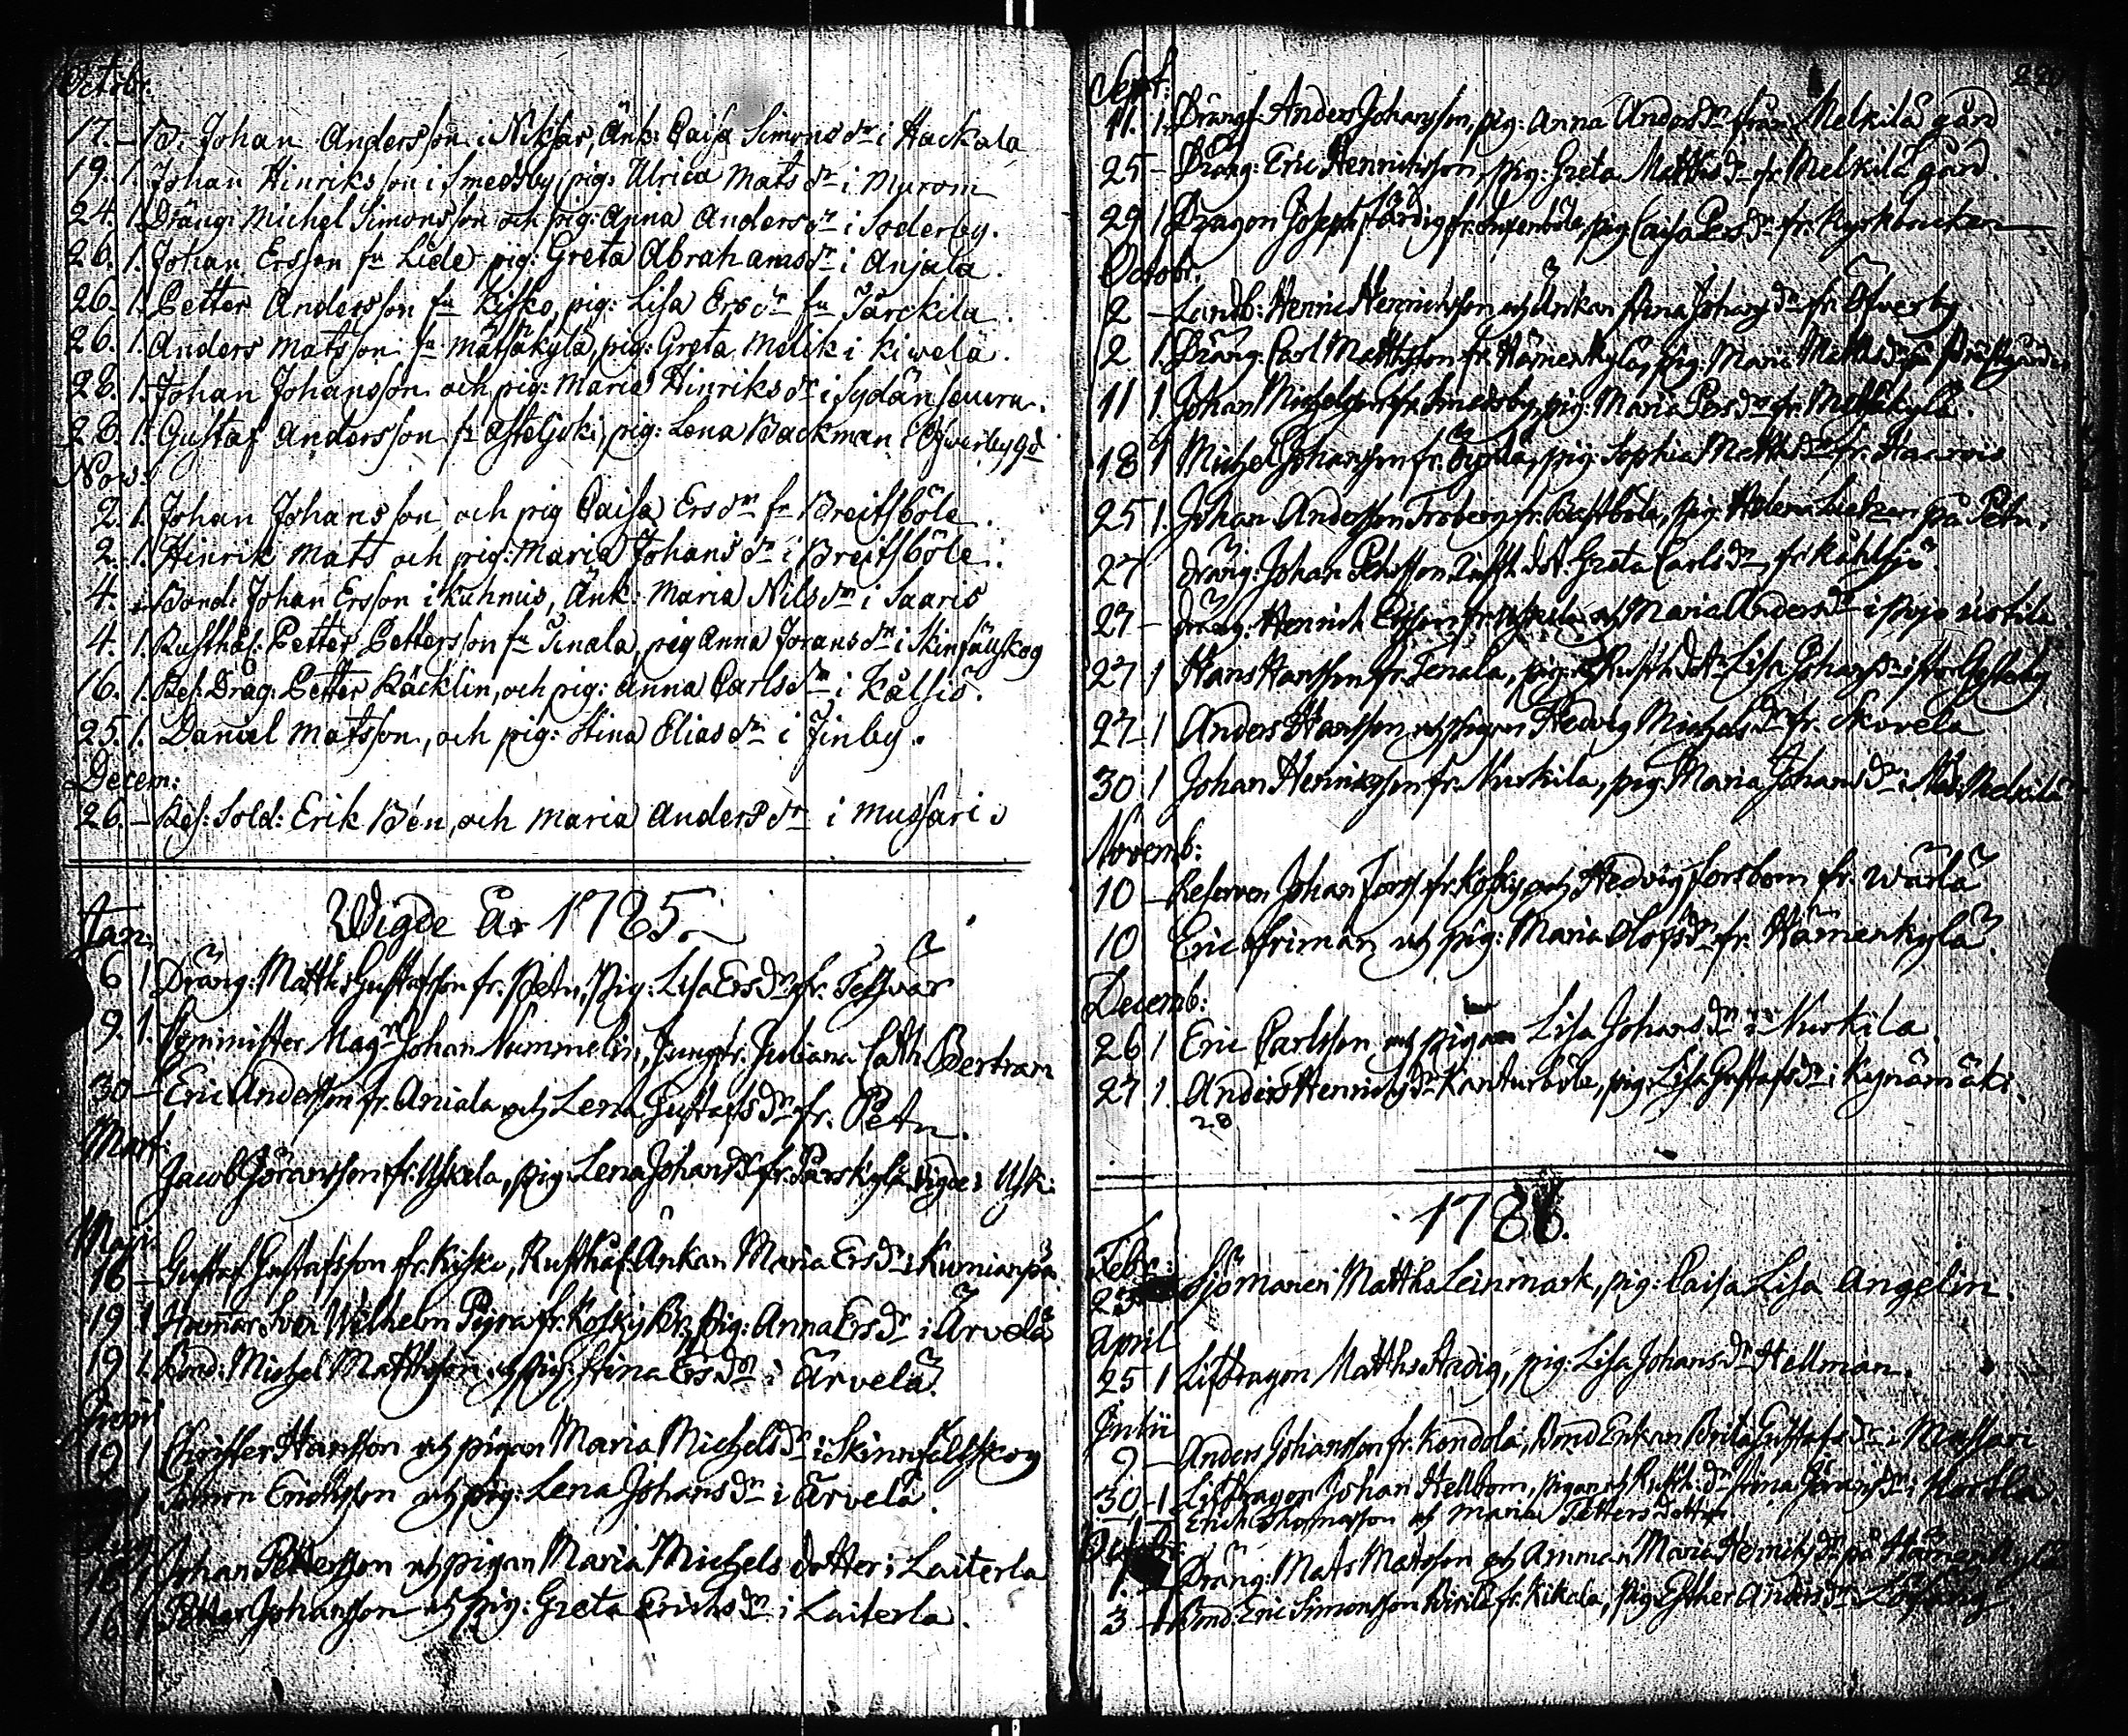 Octobr:
17. – B: Johan Andersson i Niksar, Änk: Caisa Simonsdr i Hackala
19. 1. Johan Hinriksson i Smedsby, pig: Ulrica Matsdr i Murom
24. 1. Dräng: Michel Simonsson och pig: Anna Andersdr i Söderby.
26. 1. Johan Ersson fn Lide pig: Greta Abrahamsdr i Anjala.
26. 1. Petter Andersson fn Kisko, pig: Lisa Ersdr fn Särckila.
26. 1. Anders Matsson fn Mätsäkylä, pig: Greta Melik i Kiwelä.
28. 1. Johan Johansson och pig: Maria Hinriksdr i Sydänseura.
28. 1. Gustaf Andersson fn Asteljoki, pig: Lena Backman i Öfwerby gd
Nov:
2. 1. Johan Johansson och pig Caisa Ersdr fn Breitsböle.
2. 1. Hinrik Mats och pig: Maria Johansdr i Breitsböle.
4. – Bond: Johan Ersson i Kuhmis, Änk: Maria Nilsdr i Saaris
4. 1. Rusthål: Petter Pettersson fn Tenala, pig Anna Joransdr i Skinfällskog
16. 1. Res: Drag: Petter Räcklin, och pig: Anna Carlsdr i Kälsiö.
25. 1. Daniel Matsson, och pig: Stina Eliasdr i Finby.
Decem:
26. – Res: Sold: Erik Bén, och Maria Andersdr i Mussari
Wigde År 1785.
Jan:
6 1 Dräng: Matths Gustafsson fr. Petu, Pig: Lisa Ersdr fr. Tessvär
9. 1. Comminister Magr Johan Nummelin, Jungfr. Juliana Cath Bertram
30 – Eric Andersson fr. Aniala och Lena Gustafsdr fr. Petu.
Mart:
Jacob Göransson fr. Uskela, pig: Lena Johansdr fr. Särskylä Vigde i Usk:
Maji
16 – Gustaf Gustafsson fr. Kisko, Rusthål: Änkan Maria Ersdr i Kumianpä
19 1 Wilhelm fr. Kosky Br, pig: Anna Ersdr i Ärvelä
19 1. Bond: Michel Matthsson och pig: Stina Ersdr i Ärvelä.
Junii
19 1 Christer Hansson och pigan Maria Michelsdr i Skinnfällskog
1 Simon Ericksson och pig: Lena Johansdr i Ärvelä.
16 1 Johan Pettersson och pigan Maria Michels dotter i Laiterla
16 1. Petter Johansson och pig: Greta Erichsdr i Laiterla.
Sept:
11. 1. Drängf. Anders Johansson, pig: Anna Andersdr från Melkilä gård
25 – Dräng: Eric Henricksson, pig: Greta Matthsdr fr. Melkilä gård.
29 1 Dragon Joseph Färdig fr. pig Caisa Persdr fr. Kyrkbacken
Octobr:
2 – Landb: Henric Henricksson och Änkan Stina Johansdr fr. Öfwerby.
2 1. Dräng: Carl Matthsson fr. Hämenkylä, pig: Maria Matthsdr Prästgården
11 1. Johan Michelsson fr. Smedsby, pig: Maria Persdr fr. Mettäkylä.
18 1 Michel Johansson fr. pig: Sophia Matthsdr fr. Haarvis
25 1. Johan Andersson Broberg fr. Bastböle, pig: Helena på Petu.
27 Dräng: Johan Petersson Rusth dot: Greta Carlsdr fr. Kählsjö
27 – Dräng: Henrich Ersson fr. Uskela och Maria Andersdr i Pojo
27 1 Hans Hansson fr. Tenala, pig: Rusth dotr Lisa Johansdr i
27 – 1 Anders Hansson och pigan Hedvig Michelsdr fr. Skovela
30 1 Johan Henricsson fr. Nurkila, pig: Maria Johansdr i Ned: Melkilä
Novemb:
10 – Reserven Johan Forss fr. Kosky och Hedvig Forsbom fr. Wärlä
10 Eric Friman och pig: Maria Olofsdr fr. Hämenkylä
Decemb:
26 1 Eric Carlsson och pigan Lisa Johansdr i Nurkila.
27 1. Anders Henrichsdr Kanturböle, pig: Lisa Gustafsdr i Kynämäki.
28
1786.
Febr:
23 Sjömanen Matths Leinmark, pig: Caisa Lisa Angelin.
April
25 1 Lifdragon Matths Stadig, pig: Lisa Johansdr Hellman.
Junii
9 – Anders Johansson fr. Kondola, Bond Enkan Brita Gustafsdr i Mussari
30 – 1 Lifdragon Johan Hellbom, pigan och Rusth: dr Stina Göransdr i
Erich Thomasson och Maria Petters Dotter
1. Dräng: Mats Matsson och Amman Maria Henrichsdr på Hämenkylä
3 – 1 Bond: Eric Simonsson fr. Kikala, pig: Esther Andersdr